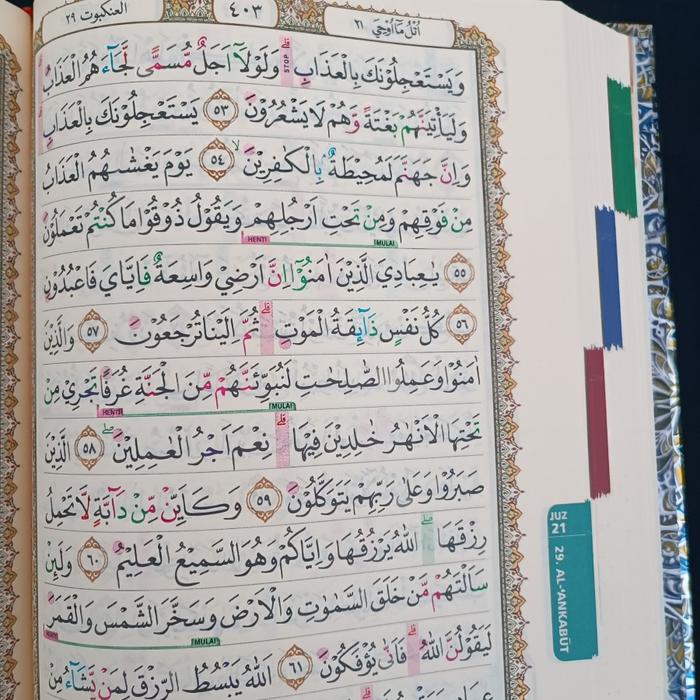 العنكبوت ٢٩
٤٠٣
اُتْلُ مَآ اُوْحِيَ ٢١
وَيَسْتَعْجِلُوْنَكَ بِالْعَذَابِۗ STOP وَلَوْلَآ اَجَلٌ مُّسَمًّى لَّجَاۤءَهُمُ الْعَذَابُ
وَلَيَأْتِيَنَّهُمْ بَغْتَةً وَّهُمْ لَا يَشْعُرُوْنَ ٥٣ يَسْتَعْجِلُوْنَكَ بِالْعَذَابِ
وَاِنَّ جَهَنَّمَ لَمُحِيْطَةٌ ۢ بِالْكٰفِرِيْنَۙ ٥٤ يَوْمَ يَغْشٰىهُمُ الْعَذَابُ
مِنْ فَوْقِهِمْ وَمِنْ تَحْتِ اَرْجُلِهِمْ وَيَقُوْلُ ذُوْقُوْا مَا كُنْتُمْ تَعْمَلُوْنَ
HENTI MULAI
٥٥ يٰعِبَادِيَ الَّذِيْنَ اٰمَنُوْٓا اِنَّ اَرْضِيْ وَاسِعَةٌ فَاِيَّايَ فَاعْبُدُوْنِ
٥٦ كُلُّ نَفْسٍ ذَاۤىِٕقَةُ الْمَوْتِۗ ثُمَّ اِلَيْنَا تُرْجَعُوْنَ ٥٧ وَالَّذِيْنَ
اٰمَنُوْا وَعَمِلُوا الصّٰلِحٰتِ لَنُبَوِّئَنَّهُمْ مِّنَ الْجَنَّةِ غُرَفًا تَجْرِيْ مِنْ
HENTI MULAI
تَحْتِهَا الْاَنْهٰرُ خٰلِدِيْنَ فِيْهَاۗ نِعْمَ اَجْرُ الْعٰمِلِيْنَۖ ٥٨ الَّذِيْنَ
صَبَرُوْا وَعَلٰى رَبِّهِمْ يَتَوَكَّلُوْنَ ٥٩ وَكَاَيِّنْ مِّنْ دَاۤبَّةٍ لَّا تَحْمِلُ
رِزْقَهَاۖ اللّٰهُ يَرْزُقُهَا وَاِيَّاكُمْ وَهُوَ السَّمِيْعُ الْعَلِيْمُ ٦٠ وَلَىِٕنْ
سَاَلْتَهُمْ مَّنْ خَلَقَ السَّمٰوٰتِ وَالْاَرْضَ وَسَخَّرَ الشَّمْسَ وَالْقَمَرَ
HENTI MULAI
لَيَقُوْلُنَّ اللّٰهُۗ فَاَنّٰى يُؤْفَكُوْنَ ٦١ اَللّٰهُ يَبْسُطُ الرِّزْقَ لِمَنْ يَّشَاۤءُ مِنْ
JUZ
21
29. AL-'ANKABŪT